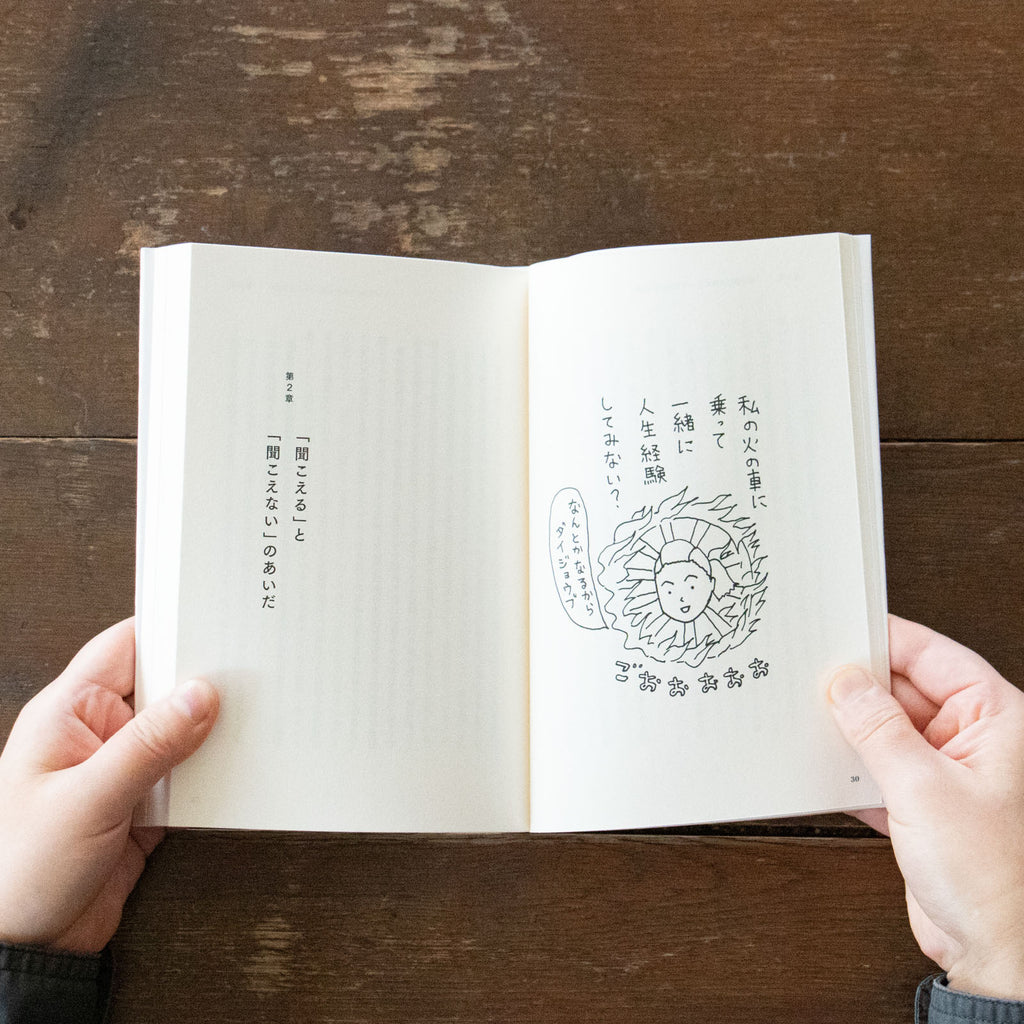 私の火の車に
乗って
一緒に
人生経験
してみない?
なんとかなるから
ダイジョウブ
ごおおおおお
30
第2章
「聞こえる」と
「聞こえない」のあいだ